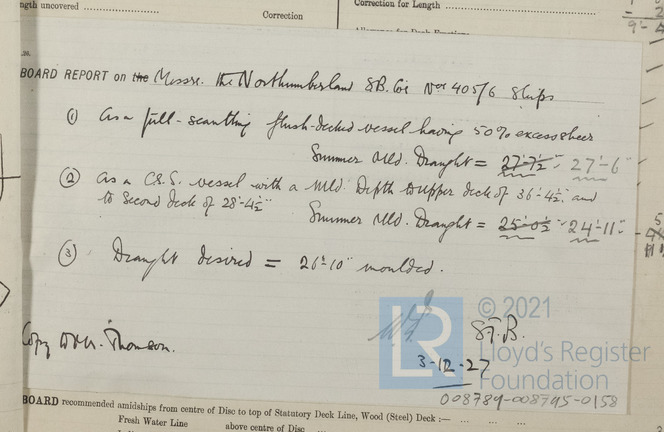 ngth uncovered
Correction
Correction for Length
BOARD REPORT on the Messrs. the Northumberland SB. Co's Nos 405/6 Ships
(1) As a full-scantling flush-decked vessel having 50% excess sheer
Summer Mld. Draught = 27'-7½" 27'-6"
(2) As a C.S.S. vessel with a Mld. Depth to upper deck of 36'-4½" and
to Second deck of 28'-4½"
Summer Mld. Draught = 25'-0½" 24'-11"
(3) Draught desired = 26'-10" moulded.
Copy to Mr. Thomson.
S.F.B.
3-12-27
LR © 2021
Lloyd's Register
Foundation
008789-008795-0158
BOARD recommended amidships from centre of Disc to top of Statutory Deck Line, Wood (Steel) Deck :—
Fresh Water Line above centre of Disc